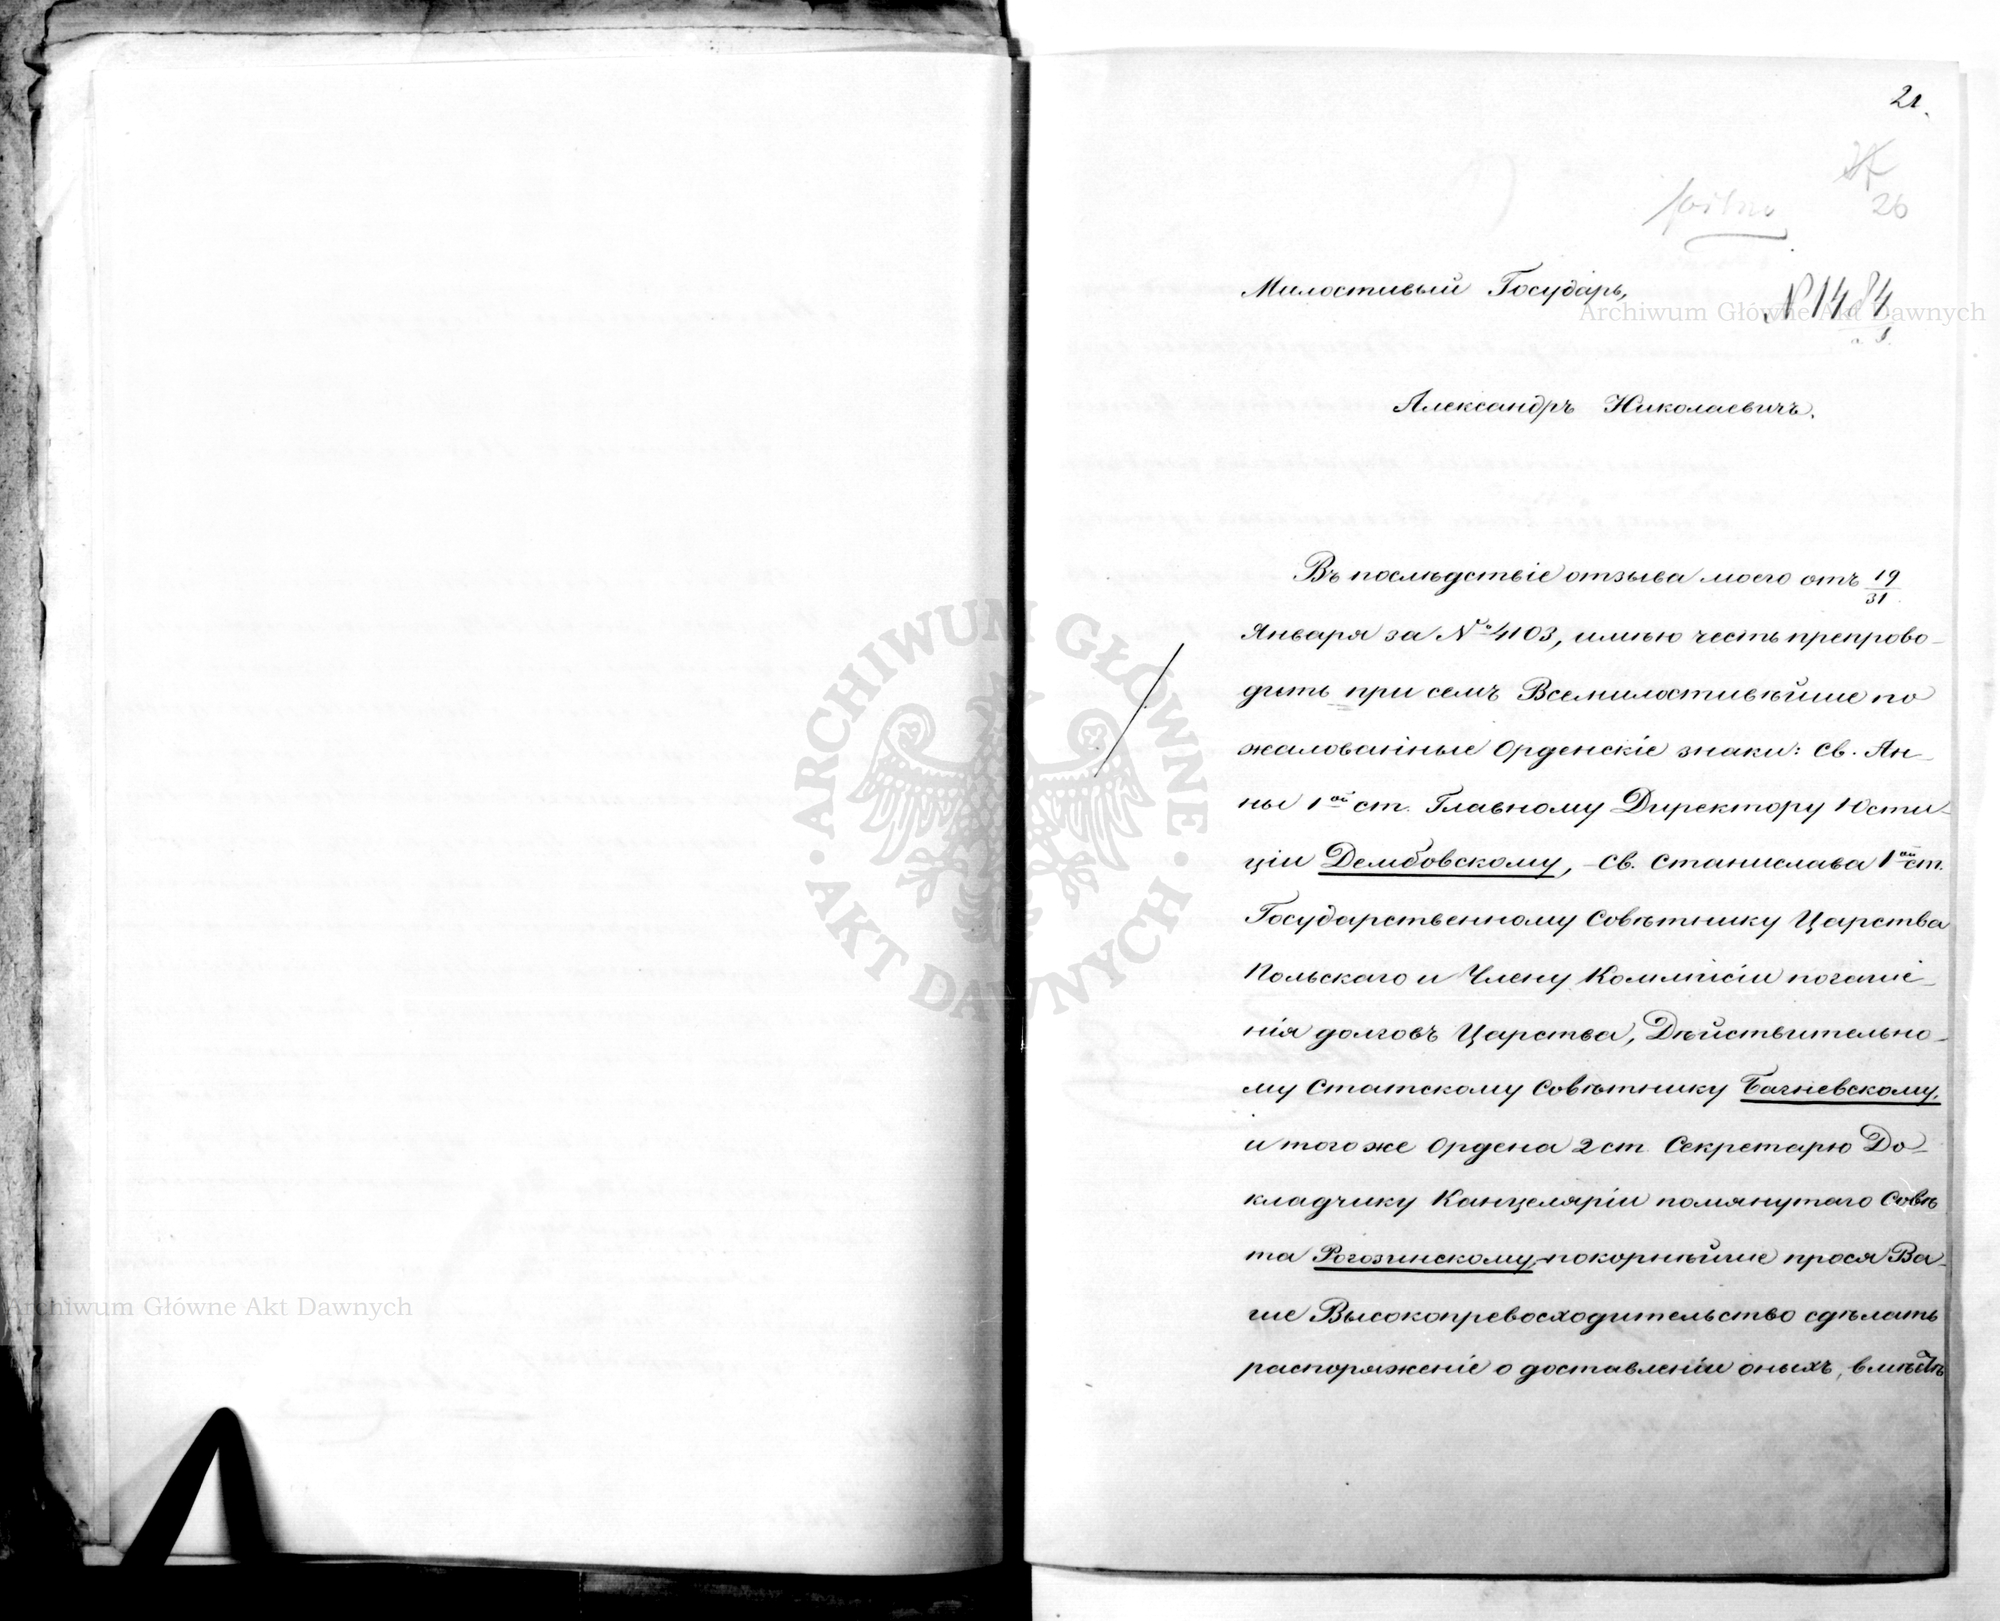 21.
26
Милостивый Государь,
№ 1484
Александръ Николаевичъ.
Въ послѣдствіе отзыва моего отъ 19/31
Января за № 4103, имѣю честь препрово-
дить при семъ Всемилостивѣйше по
жалованные Орденскіе знаки: Св. Ан-
ны 1ой ст. Главному Директору Юсти-
ціи Дембовскому, - Св. Станислава 1ой ст.
Государственному Совѣтнику Царства
Польскаго и Члену Коммисіи погаше-
нія долговъ Царства, Дѣйствительно-
му Статскому Совѣтнику Багневскому,
и того же Ордена 2 ст. Секретарю До-
кладчику Канцеляріи помянутаго Совѣ
та Рогозинскому,-покорнѣйше прося Ва-
ше Высокопревосходительство сдѣлать
распоряженіе о доставленіи оныхъ, вмѣстѣ
Archiwum Główne Akt Dawnych
ARCHIWUM GŁÓWNE · AKT DAWNYCH ·
Archiwum Główne Akt Dawnych